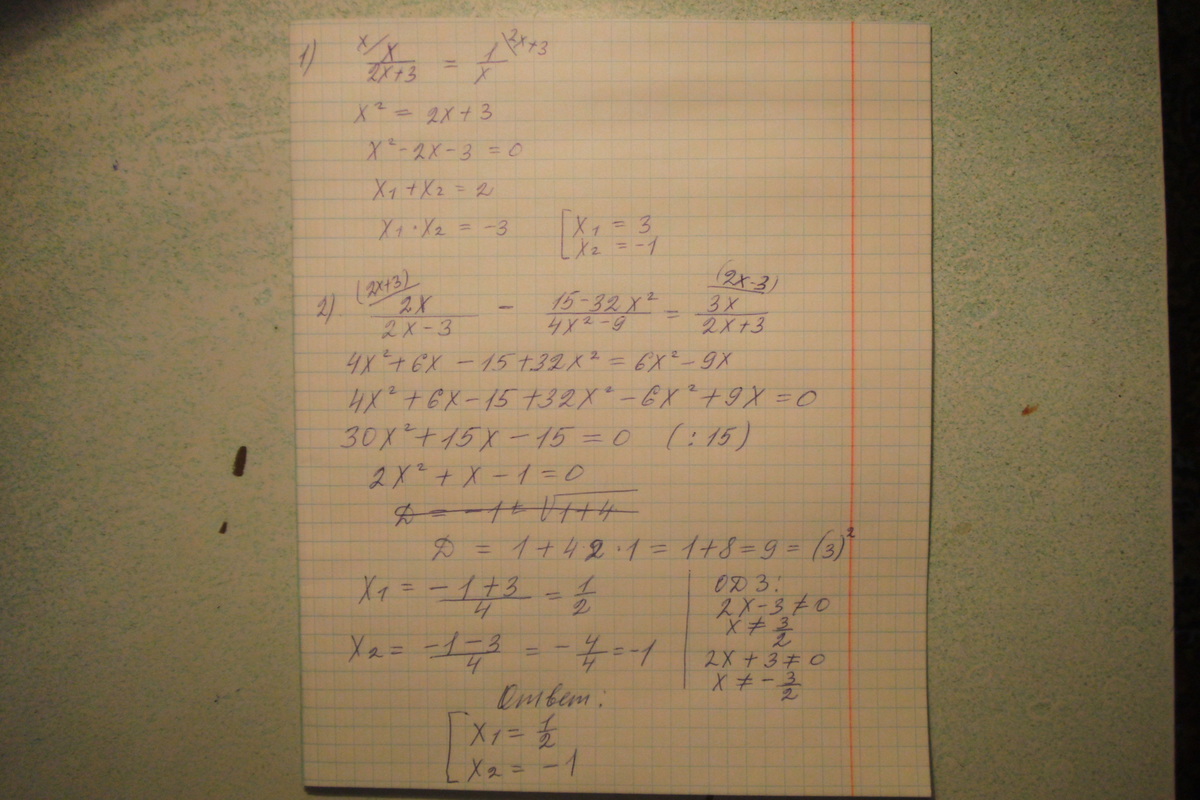 1) x/ x/(2x+3) = 1/x \2x+3
x² = 2x+3
x²-2x-3 = 0
x₁+x₂ = 2
x₁·x₂ = -3
[ x₁ = 3
x₂ = -1
2) (2x+3)/ 2x/(2x-3) - (15-32x²)/(4x²-9) = (2x-3)/ 3x/(2x+3)
4x²+6x-15+32x² = 6x²-9x
4x²+6x-15+32x²-6x²+9x=0
30x²+15x-15=0 (:15)
2x²+x-1=0
D = -1± √1+4
D = 1+4·2·1=1+8=9=(3)²
x₁ = (-1+3)/4 = 1/2
x₂ = (-1-3)/4 = -4/4=-1
ОДЗ:
2x-3≠0
x ≠ 3/2
2x+3≠0
x ≠ -3/2
Ответ:
[ x₁ = 1/2
x₂ = -1